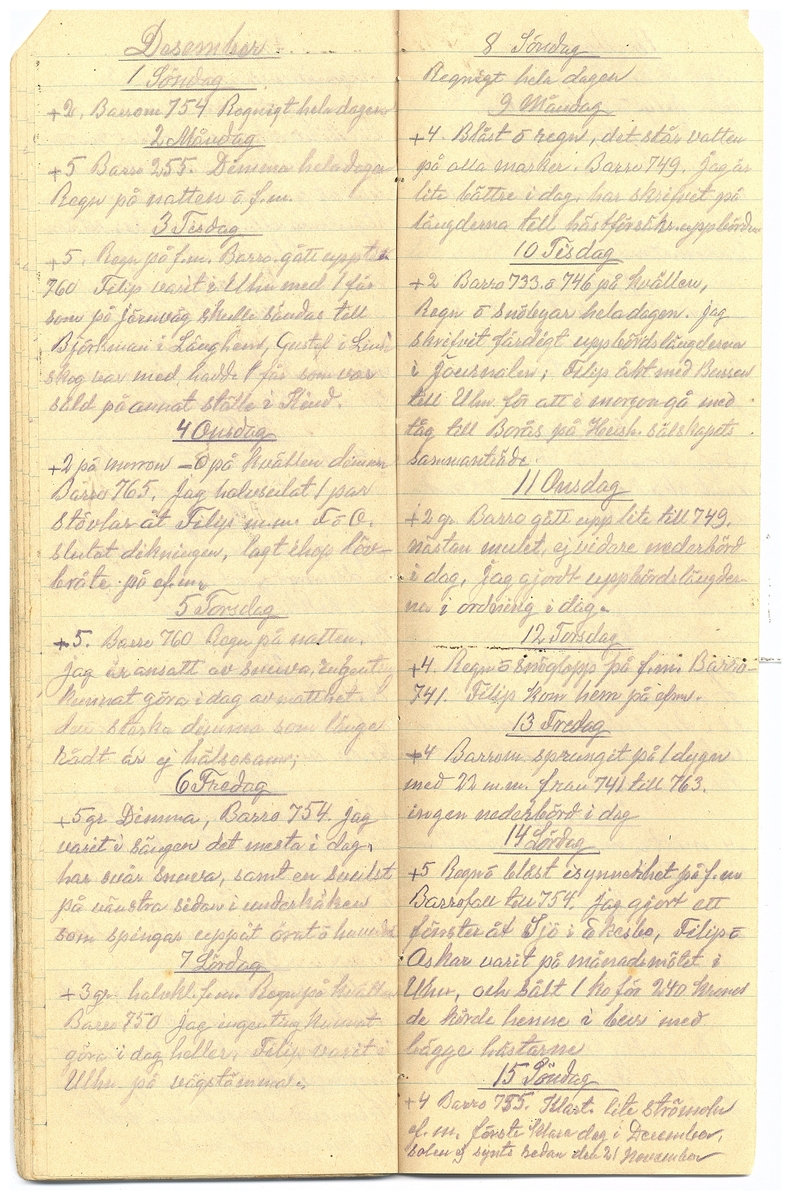 Desember
1 Söndag
+2, Barrom 754 Regnigt hela dagen
2 Måndag
+5 Barro 255. Dimma hela dagen
Regn på natten ö f.m.
3 Tisdag
+5, Regn på f.m. Barro gått upp till
760 Filip varit i Uhn med 1 får
som på järnväg skulle sändas till
Björkman i Länghem, Gustaf i Lind
skog var med hadde 1 får som var
såld på annat ställe i Kind.
4 Onsdag
+2 på morron –0 på kvällen dimma
Barro 765, Jag halvsulat 1 par
stövlar åt Filip m.m. F ö O.
slutat dikningen, lagt ihop löv–
bråte på ef.m.
5 Torsdag
+5. Barro 760 Regn på natten.
Jag är ansatt av snuva, ingenting
kunnat göra i dag av matthet.
den starka dimma som länge
rådt är ej hälsosam;
6 Fredag
+5 gr Dimma, Barro 754. jag
varit i sängen det mesta i dag,
har svår snuva, samt en svulst
på vänstra sidan i underkäken
som spingar uppåt örat ö huvudet
7 Lördag
+3 gr. halvkl. f.m. Regn på kvällen
Barro 750 jag ingenting kunnat
göra i dag heller, Filip varit i
Uhn på vägstämma.
8 Söndag
Regnigt hela dagen
9 Måndag
+4 Blåst ö regn, det står vatten
på alla marker. Barro 749. Jag är
lite bättre i dag, har skrifvit på
längderna till hästförsäkr. uppbörden
10 Tisdag
+2 Barro 733. ö 746 på kvällen,
Regn ö snöbyar hela dagen. jag
skrifvit färdigt uppbördslängderna
i Jöurnalen; Filip åkt med Bussen
till Uhn för att i morgon gå med
tåg till Borås på Hush. sälskapets
sammanträde.
11 Onsdag
+2 gr. Barro gått upp lite till 749.
nästan mulet, ej vidare nederbörd
i dag, Jag gjordt uppbördslängder–
na i ordning i dag.
12 Torsdag
+4. Regn ö snöglopp på f.m. Barro–
741. Filip kom hem på efm.
13 Fredag
+4 Barrom. sprungit på 1 dygn
med 22 m.m. från 741 till 763.
ingen nederbörd i dag
14 Lördag
+5 Regn ö blåst isynnerhet på f.m
Barrofall till 754. jag gjort ett
fönster åt Sjö i Åkesbo, Filip ö
Oskar varit på månadsmötet i
Uhn, och sålt 1 ko för 240 kronor
de körde henne i bur med
bägge hästarne
15 Söndag
+4 Barro 755. Klart. lite strömoln
ef.m. förste klara dag i December,
solen ej synts sedan den 21 November